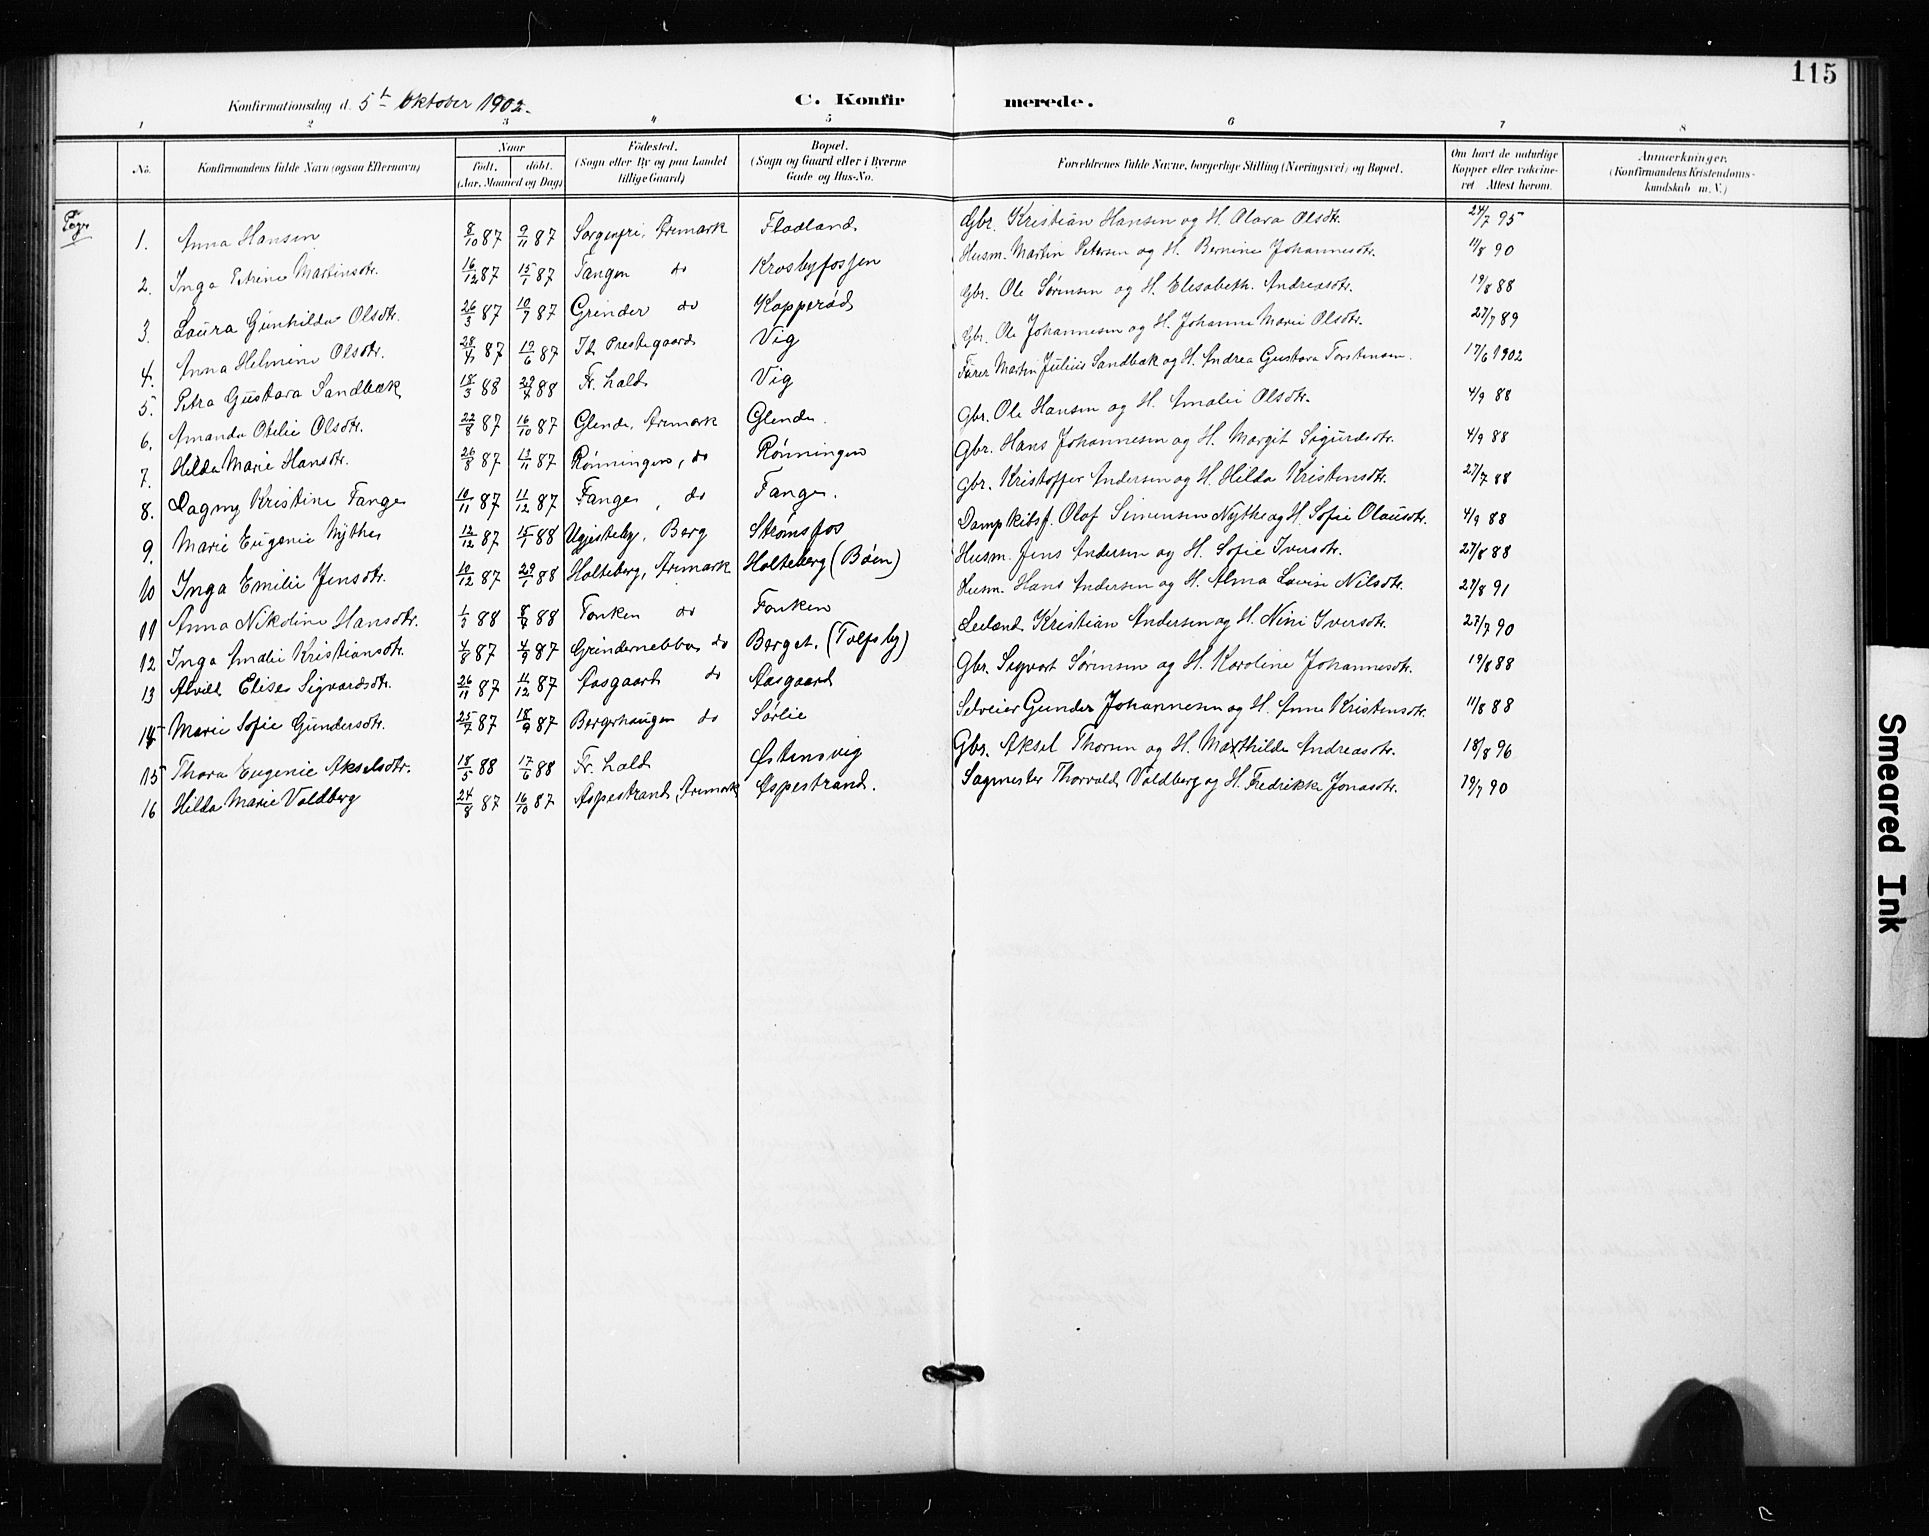 115
Konfirmationsdag d. 5t Oktober 1902.
C. Konfirmerede.
1 2 3 4 5 6 7 8
No. Konfirmandens fulde Navn (ogsaa Efternavn) Naar födt. döbt. (Aar, Maaned og Dag) Födested. (Sogn eller By og paa Landet tillige Gaard) Bopæl. (Sogn og Gaard eller i Byerne Gade og Hus-No. Forældrenes fulde Navne, borgerlige Stilling (Næringsvei) og Bopæl. Om havt de naturlige Kopper eller vakcineret Attest herom. Anmærkninger. (Konfirmandens Kristendomskundskab m. V.)
Piger
1. Anna Hansen 8/10 87 9/11 87 Sorgenfri, Aremark Flodland Gbr. Kristian Hansen og H. Olava Olsdtr. 24/7 95
2. Inga Petrine Martinsdtr. 16/12 87 15/1 87 Tangen do Krosbyfossen Husm. Martin Petersen og H. Bernine Johannesdtr. 11/8 90
3. Laura Gunhilda Olsdtr. 26/3 87 10/7 87 Grinder do Kopperød Gbr. Ole Sørensen og H. Elisabeth Andreasdtr. 19/8 88
4. Anna Helmine Olsdtr. 28/4 87 19/6 87 Id Prestegaard Vig Gbr. Ole Johannesen og H. Johanne Marie Olsdtr. 27/7 89
5. Petra Gustava Sandbæk 18/3 88 29/4 88 Fr. hald Vig Fører Martin Julius Sandbæk og H. Andrea Gustava Torstensen. 17/6 1902
6. Amanda Otilie Olsdtr. 22/8 87 16/10 87 Glende, Aremark Glende. Gbr. Ole Hansen og H. Amalie Olsdtr. 4/9 88
7. Hilda Marie Hansdtr. 26/8 87 13/11 87 Rønningen, do Rønningen Gbr. Hans Johannesen og H. Margit Sigurdsdtr. 4/9 88
8. Dagny Kristine Tange 10/11 87 11/12 87 Tange, do Tange. Gbr. Kristoffer Andersen og H. Hilda Kristensdtr. 27/7 88
9. Marie Eugenie Nythe 12/12 87 15/1 88 Berg Strømsfos Dampskibsf. Olof Simensen Nythe og H. Sofie Olausdtr. 4/9 88
10 Inga Emilie Jensdtr. 10/12 87 29/1 88 Holteberg, Aremark Holteberg (Bøen) Husm. Jens Andersen og H. Sofie Iversdtr. 27/8 88
11 Anna Nikoline Hansdtr. 88 88 Fonken do Fonken Husm. Hans Andersen og H. Alma Lovise Nilsdtr. 27/8 91
12 Inga Amalie Kristiansdtr. 4/8 87 4/9 87 Grindernebba do Berget. (Tolfsby) Leiland Kristian Andersen og H. Nini Iversdtr. 27/7 90
13 Alvild Elise Sigvardsdtr. 26/11 87 11/12 87 Aasgaard do Aasgaard Gbr. Sigvart Sørensen og H. Karoline Johannesdtr. 19/8 88
14 Marie Sofie Gundersdtr. 25/7 87 18/9 87 Bergerhaugen do Sørlie Selveier Gunder Johannesen og H. Anne Kristensdtr. 11/8 88
15 Thora Eugenie Akselsdtr. 18/5 88 17/6 88 Fr. hald Østensvig Gbr. Aksel Thoren og H. Maxthilde Andreasdtr. 18/8 96
16 Hilda Marie Voldberg 24/8 87 16/10 87 Aspestrand, Aremark Aspestrand. Sagmester Thorvald Voldberg og H. Fredrikke Jonasdtr. 19/7 90
Smeared Ink